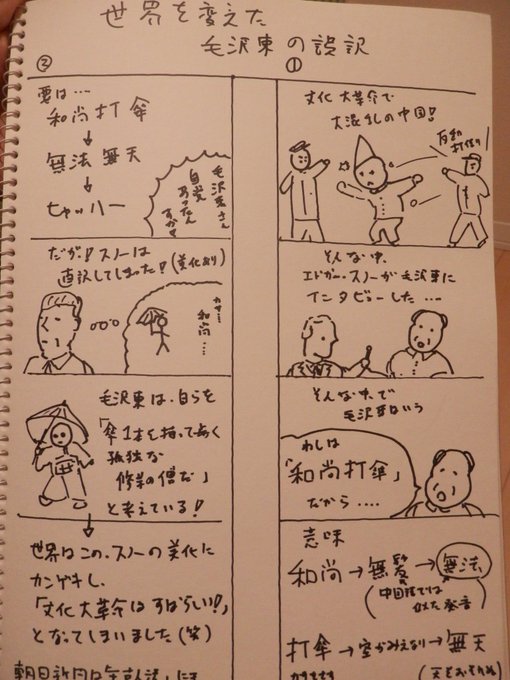 世界を変えた
毛沢東の誤訳
①
文化大革命で
大混乱の中国!
そんな中、
エドガー・スノーが毛沢東に
インタビューした…
そんな中で
毛沢東はいう
わしは
「和尚打傘」
だから….
意味
和尚→無髪→無法
(中国語では
似た発音)
打傘→空がみえない→無天
カサをさす
(天をおそれぬ
②
要は…
和尚打傘
↓
無法無天
↓
ヒャッハー
毛沢東さん
自覚
あったん
すか
だが!スノーは
直訳してしまった!(美化あり)
カサ…
和尚…
毛沢東は、自らを
「傘1本を持ってあるく
孤独な
修業の僧だ」
と考えている!
↓
世界はこの、スノーの美化に
カンゲキし、
「文化大革命はすばらしい!」
となってしまいました(笑)